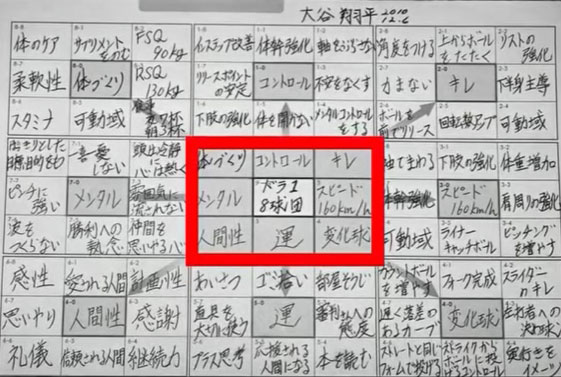 大谷 翔平 2010 12.6
体のケア
サプリメントをのむ
FSQ 90kg
インステップ改善
体幹強化
軸をぶらさない
角度をつける
上からボールをたたく
リストの強化
柔軟性
体づくり
RSQ 130kg
リリースポイントの安定
コントロール
不安をなくす
力まない
キレ
下半身主導
スタミナ
可動域
夜7杯 朝3杯
下肢の強化
体を開かない
メンタルコントロールをする
ボールを前でリリース
回転数アップ
可動域
はっきりとした目標、目的をもつ
一喜一憂しない
頭は冷静に心は熱く
体づくり
コントロール
キレ
軸でまわる
下肢の強化
体重増加
ピンチに強い
メンタル
雰囲気に流されない
メンタル
ドラ1 8球団
スピード 160km/h
体幹強化
スピード 160km/h
肩周りの強化
波をつくらない
勝利への執念
仲間を思いやる心
人間性
運
変化球
可動域
ライナーキャッチボール
ピッチングを増やす
感性
愛される人間
計画性
あいさつ
ゴミ拾い
部屋そうじ
カウントボールを増やす
フォーク完成
スライダーのキレ
思いやり
人間性
感謝
道具を大切に使う
運
審判さんへの態度
遅く落差のあるカーブ
変化球
左打者への決め球
礼儀
信頼される人間
継続力
プラス思考
応援される人間になる
本を読む
ストレートと同じフォームで投げる
ストライクからボールに投げるコントロール
奥行きをイメージ